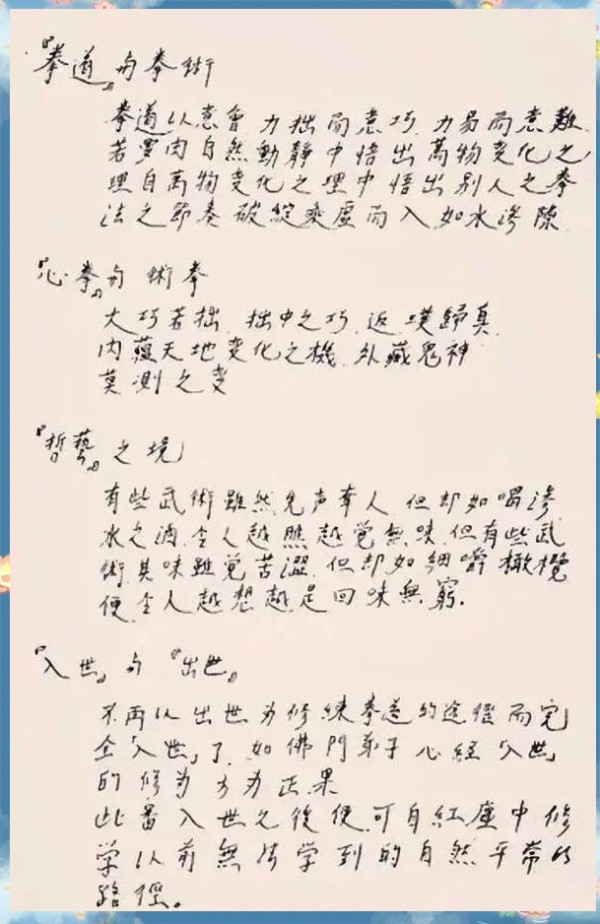 『拳道』与拳術
拳道以意會 力拙而意巧 力易而意難
若要由自然動靜中悟出萬物变化之
理自萬物变化之理中悟出别人之拳
法之節奏破綻乘虚而入如水滲隙
『心拳』与術拳
大巧若拙 拙中之巧 返璞歸真
内蘊天地变化之機 外藏鬼神
莫測之变
『哲藝』之境
有些武術雖然先声奪人 但却如喝滲
水之酒 令人越 越覚無味 但有些武
術其味雖覚苦澀 但却如細嚼橄欖
便令人越想越是回味無窮.
『入世』与『出世』
不再以出世为修練拳道的途徑而完
全「入世」了 如佛門弟子心經「入世」
的修为方为正果
此番入世之後便可自紅塵中修
学以前無法学到的自然平常的
路徑。